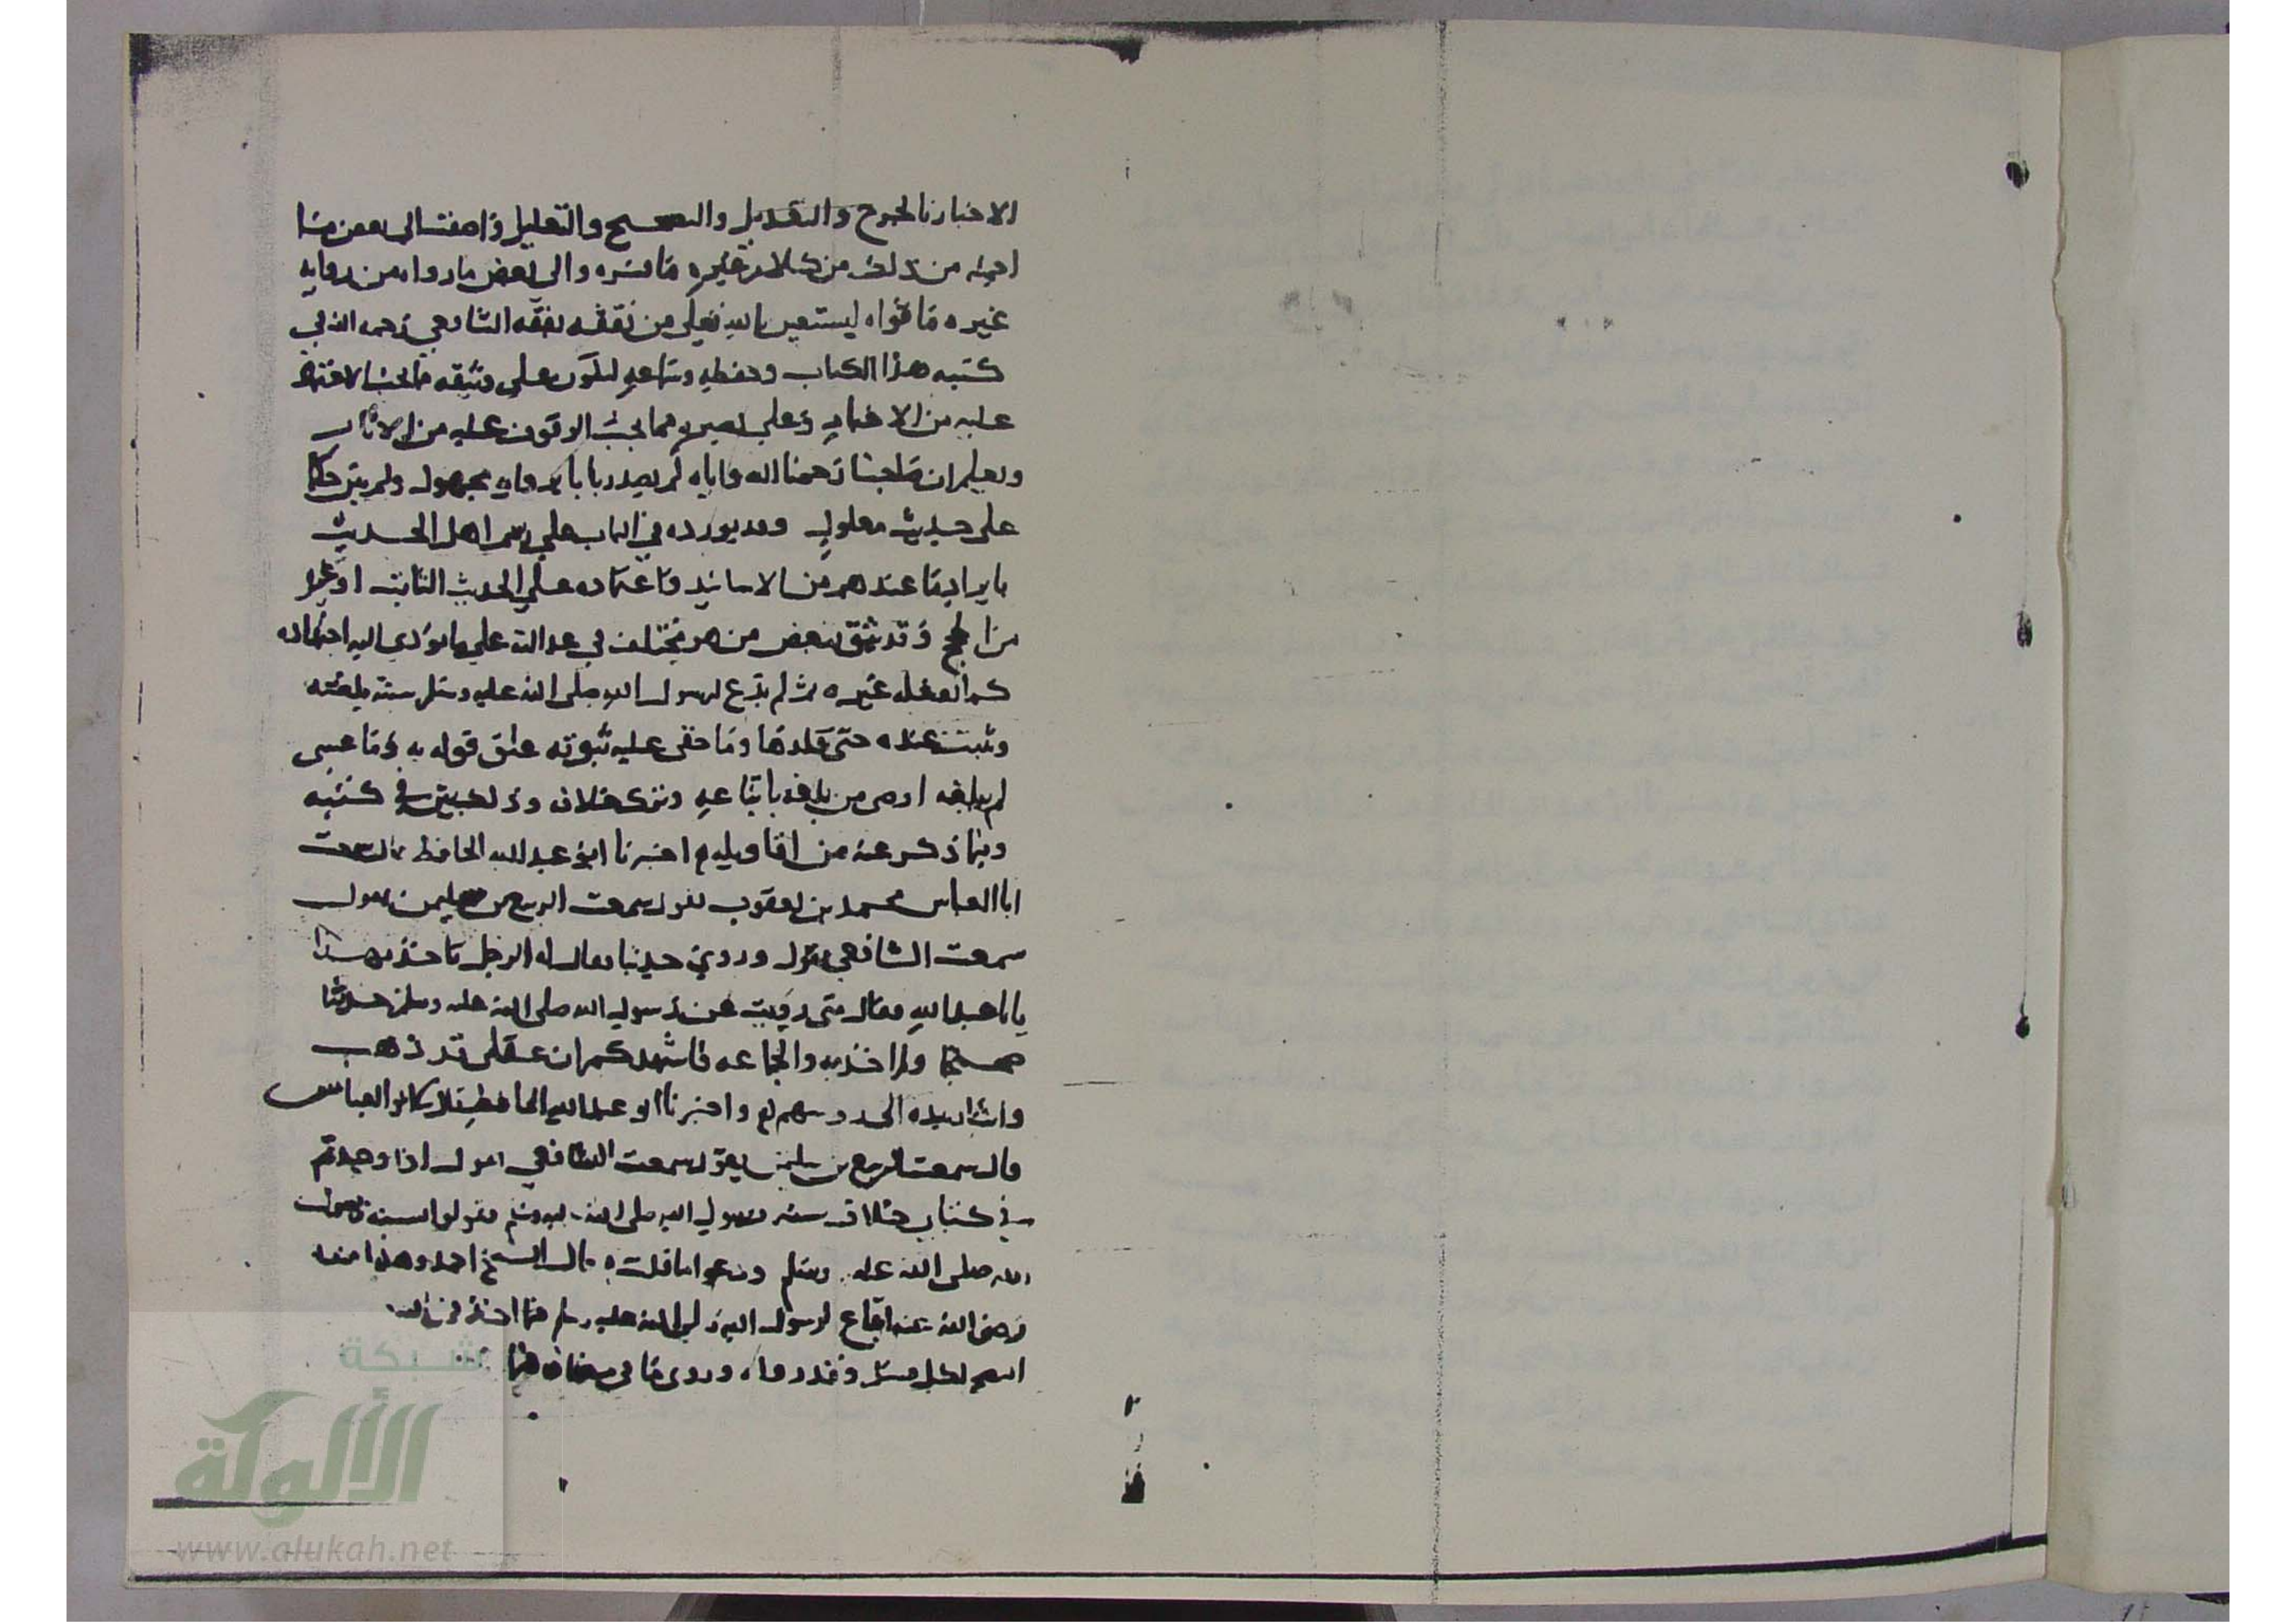 الاخبار بالجرح والتعديل والتصحيح والتعليل واضفت الى بعض ما
اجمله من ذلك من كلام غيره ما فسره والى بعض ما رواه من رواية
غيره ما قواه ليستعين بالله تعالى من تفقه بفقه الشافعي رحمه الله في
كتبه هذا الكتاب وحفظه وسماعه ليكون على وثيقة مما يجب الاعتماد
عليه من الاخبار وعلى بصيرة مما يجب الوقوف عليه من الاثار
ويعلم ان صاحبنا رحمنا الله واياه لم يصدر بابا برواية مجهول ولم يبن حكما
على حديث معلول وقد يورده في الباب على رسم اهل الحديث
بايراد ما عندهم من الاسانيد واعتماده على الحديث الثابت او غيره
من الحجج وقد يثق ببعض من هو مختلف في عدالته على ما يؤدي اليه اجتهاده
كما يفعله غيره ثم لم يدع لرسول الله صلى الله عليه وسلم سنة بلغته
وثبتت عنده حتى قلدها وما خفي عليه ثبوته علق قوله به وما عسى
لم يبلغه اوصى من بلغه باتباعه وترك خلافه وذلك بين في كتبه
وفيما ذكر عنه من اقاويله اخبرنا ابو عبد الله الحافظ قال سمعت
ابا العباس محمد بن يعقوب يقول سمعت الربيع بن سليمن يقول
سمعت الشافعي يقول وروي حديثا فقال له الرجل تاخذ بهذا
يابا عبد الله فقال متى رويت عن رسول الله صلى الله عليه وسلم حديثا
صحيحا ولم اخذ به والجماعه فاشهدكم ان عقلي قد ذهب
واشار بيده الى رءوسهم واخبرنا ابو عبد الله الحافظ ابو العباس
قال سمعت الربيع بن سليمن يقول سمعت الشافعي يقول اذا وجدتم
في كتابي خلاف سنة رسول الله صلى الله عليه وسلم فقولوا بسنة رسول
الله صلى الله عليه وسلم ودعوا ما قلت قال الشيخ احمد وهذا منه
رضي الله عنه اتباع لرسول الله صلى الله عليه وسلم فيما
لكل وقد روي
شبكة
الألوكة
www.alukah.net